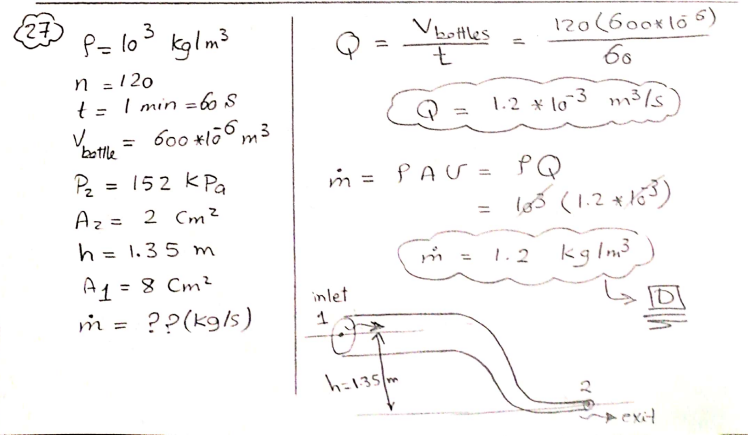 27
ρ = 10³ kg/m³
n = 120
t = 1 min = 60 S
V bottle = 600 * 10⁻⁶ m³
P₂ = 152 KPa
A₂ = 2 Cm²
h = 1.35 m
A₁ = 8 Cm²
ṁ = ??(kg/s)
Q = V bottles / t = 120(600*10⁻⁶) / 60
Q = 1.2 * 10⁻³ m³/s
ṁ = ρ A υ = ρ Q
= 10³ (1.2 * 10⁻³)
ṁ = 1.2 kg/m³
D
inlet
1
h=1.35 m
2
exit